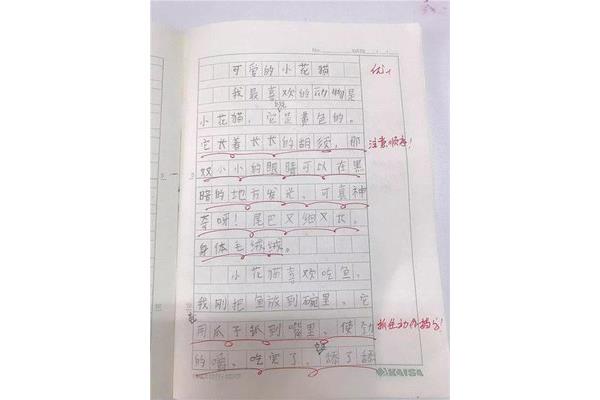 No.
优+
可爱的小花猫
我最喜欢的动物是
小花猫，它是黄色的。
它长着长长的胡须，那
注意顺序！
双小小的眼睛可以在黑
暗的地方发光，可真神
奇呀！尾巴又细又长。
身体毛绒绒。
小花猫喜欢吃鱼。
我刚把鱼放到碗里，它
用爪子抓到嘴里，使劲
抓住动作描写！
的嚼，吃完了，舔了舔
KAISA